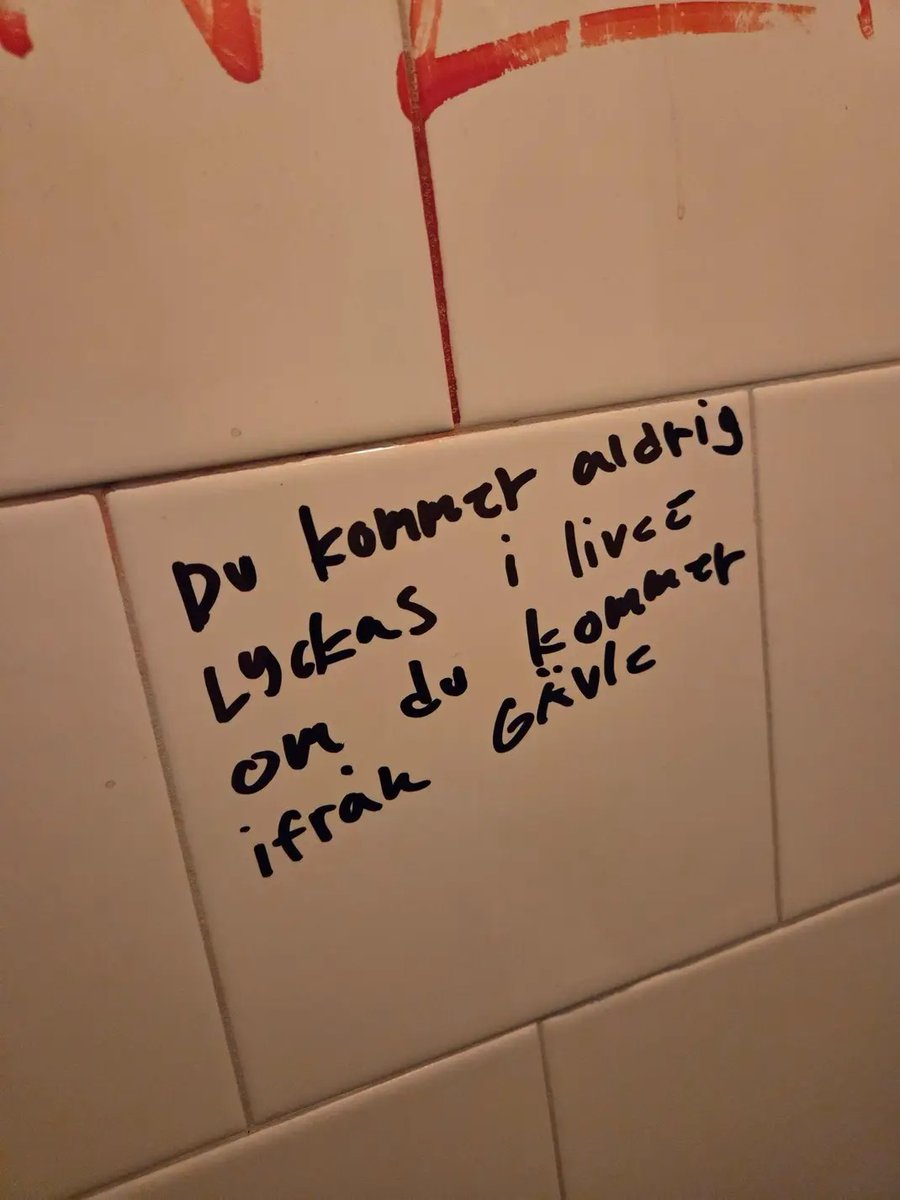 Du kommer aldrig
Lyckas i livet
om du kommer
ifrån Gävle